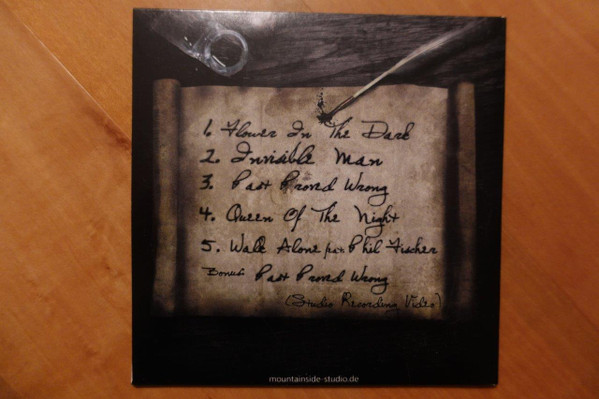 1. Flower In The Dark
2. Invisible Man
3. Past Proved Wrong
4. Queen Of The Night
5. Walk Alone feat. Phil Fischer
Bonus: Past Proved Wrong
(Studio Recording Video)
mountainside-studio.de